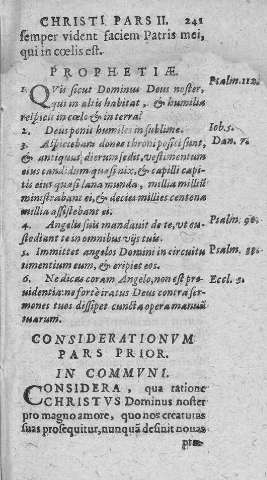 CHRISTI PARS II. 241
semper vident faciem Patris mei,
qui in cœlis est.
PROPHETIÆ.
1. QVis sicut Dominus Deus noster, Psalm. 112.
qui in altis habitat, & humilia
respicit in cœlo & in terra?
2. Deus ponit humiles in sublime. Iob. 5.
3. Aspiciebam donec throni positi sunt, Dan. 7.
& antiquus dierum sedit, vestimentum
eius candidum quasi nix, & capilli capi-
tis eius quasi lana munda, millia milliū
ministrabant ei, & decies millies centena
millia assistebant ei.
4. Angelis suis mandauit de te, vt cu- Psalm. 90.
stodiant te in omnibus vijs tuis.
5. Immittet angelos Domini in circuitu Psalm.
timentium eum, & eripiet eos.
6. Ne dicas coram Angelo, non est pro- Eccl. 5.
uidentia: ne forte iratus Deus contra ser-
mones tuos dissipet cuncta opera manuū
tuarum.
CONSIDERATIONVM
PARS PRIOR.
IN COMMVNI.
CONSIDERA, qua ratione
CHRISTVS Dominus noster
pro magno amore, quo nos creaturas
suas prosequitur, nunquā desinit nouas